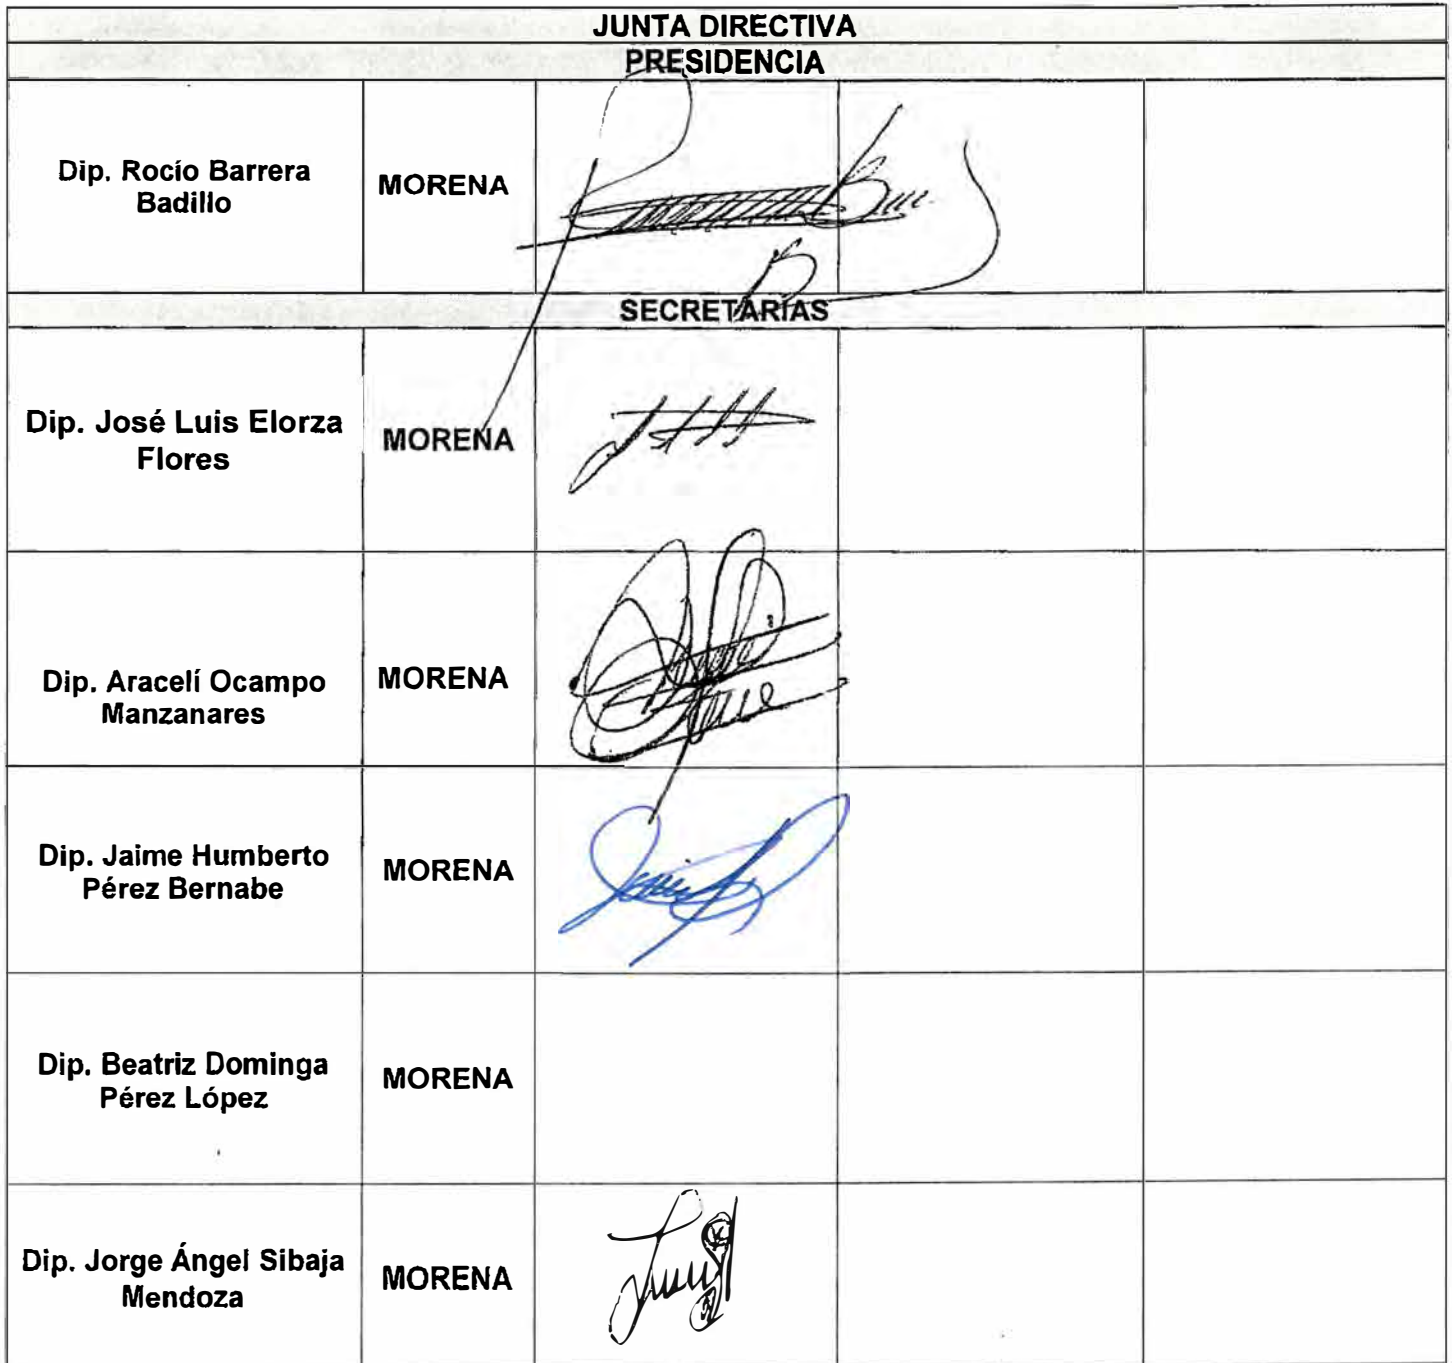 JUNTA DIRECTIVA
PRESIDENCIA
Dip. Rocío Barrera
Badillo
MORENA
SECRETARÍAS
Dip. José Luis Elorza
Flores
MORENA
Dip. Aracelí Ocampo
Manzanares
MORENA
Dip. Jaime Humberto
Pérez Bernabe
MORENA
Dip. Beatriz Dominga
Pérez López
MORENA
Dip. Jorge Ángel Sibaja
Mendoza
MORENA